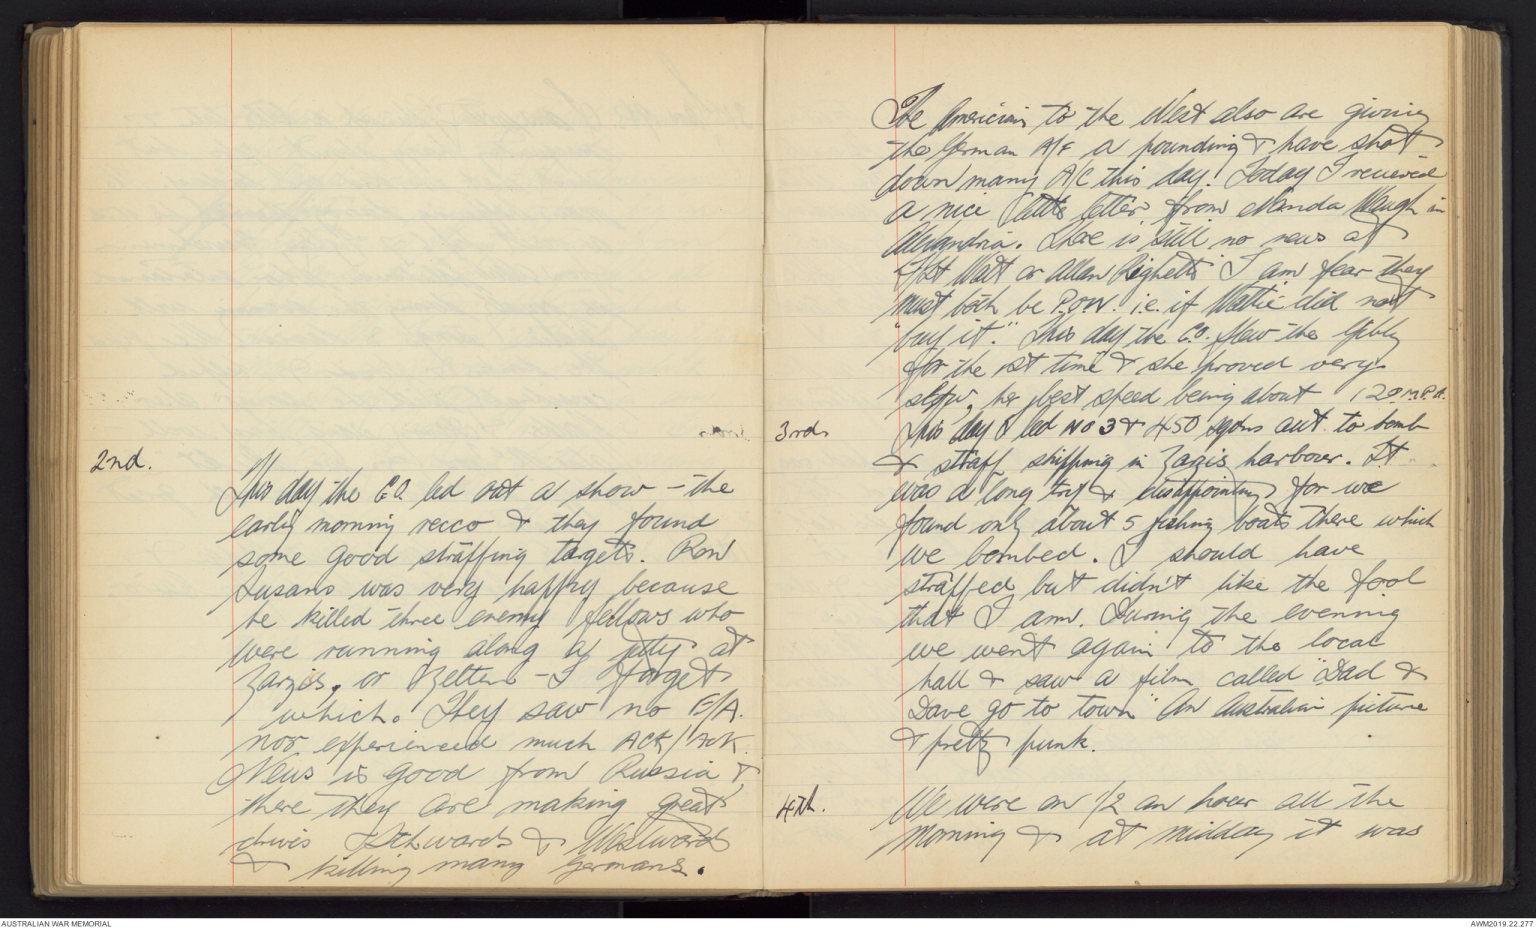 2nd.
This day the C.O. led out a show - the
early morning recco & they found
some good straffing targets. Ron
Susans was very happy because
he killed three enemy fellows who
were running along a jetty at
Zarzis, or Zelten - I forget
which. They saw no E/A.
nor experienced much ACK/ACK.
News is good from Russia &
there they are making great
drives Sthwards & Westwards
& killing many Germans.
The Americans to the West also are giving
the German A/F a pounding & have shot
down many A/C this day. Today I received
a nice little letter from Nanda Waugh in
Alexandria. There is still no news of
F/Sgt Watt or Allan Righetti I am fear they
must both be P.O.W. i.e. if Wattie did not
"buy it." This day the C.O. flew the Gibly
for the 1st time & she proved very
slow, her best speed being about 120 M.P.H.
3rd
This day I led No 3 & 450 sqdns out to bomb
& straff shipping in Zarzis harbour. It
was a long trip & disappointing for we
found only about 5 fishing boats there which
we bombed. I should have
straffed but didn't like the fool
that I am. During the evening
we went again to the local
hall & saw a film called "Dad &
Dave go to town" An Australian picture
& pretty punk.
4th.
We were on 1/2 an hour all the
morning & at midday it was
AUSTRALIAN WAR MEMORIAL
AWM2019.22.277